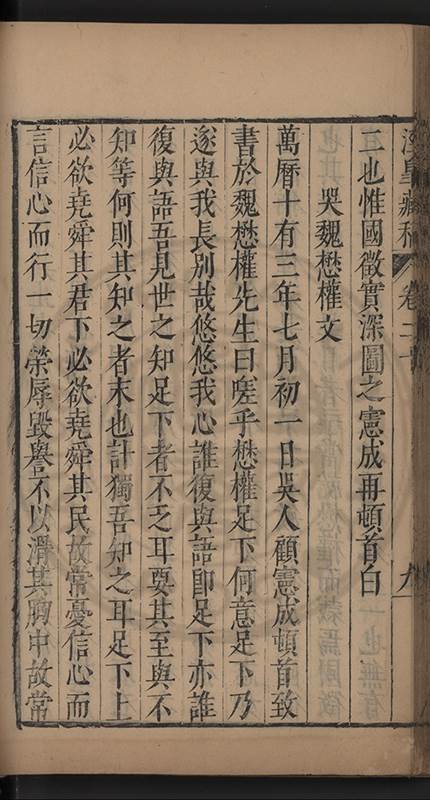 涇皋藏稿 卷二十 九
二也惟國徵實深圖之憲成再頓首白
哭魏懋權文
萬曆十有三年七月初一日吳人顧憲成頓首致
書於魏懋權先生曰嗟乎懋權足下何意足下乃
遂與我長別哉悠悠我心誰復與語卽足下亦誰
復與語吾見世之知足下者不乏耳要其至與不
知等何則其知之者末也計獨吾知之耳足下上
必欲堯舜其君下必欲堯舜其民故常憂信心而
言信心而行一切榮辱毀譽不以滑其胸中故常